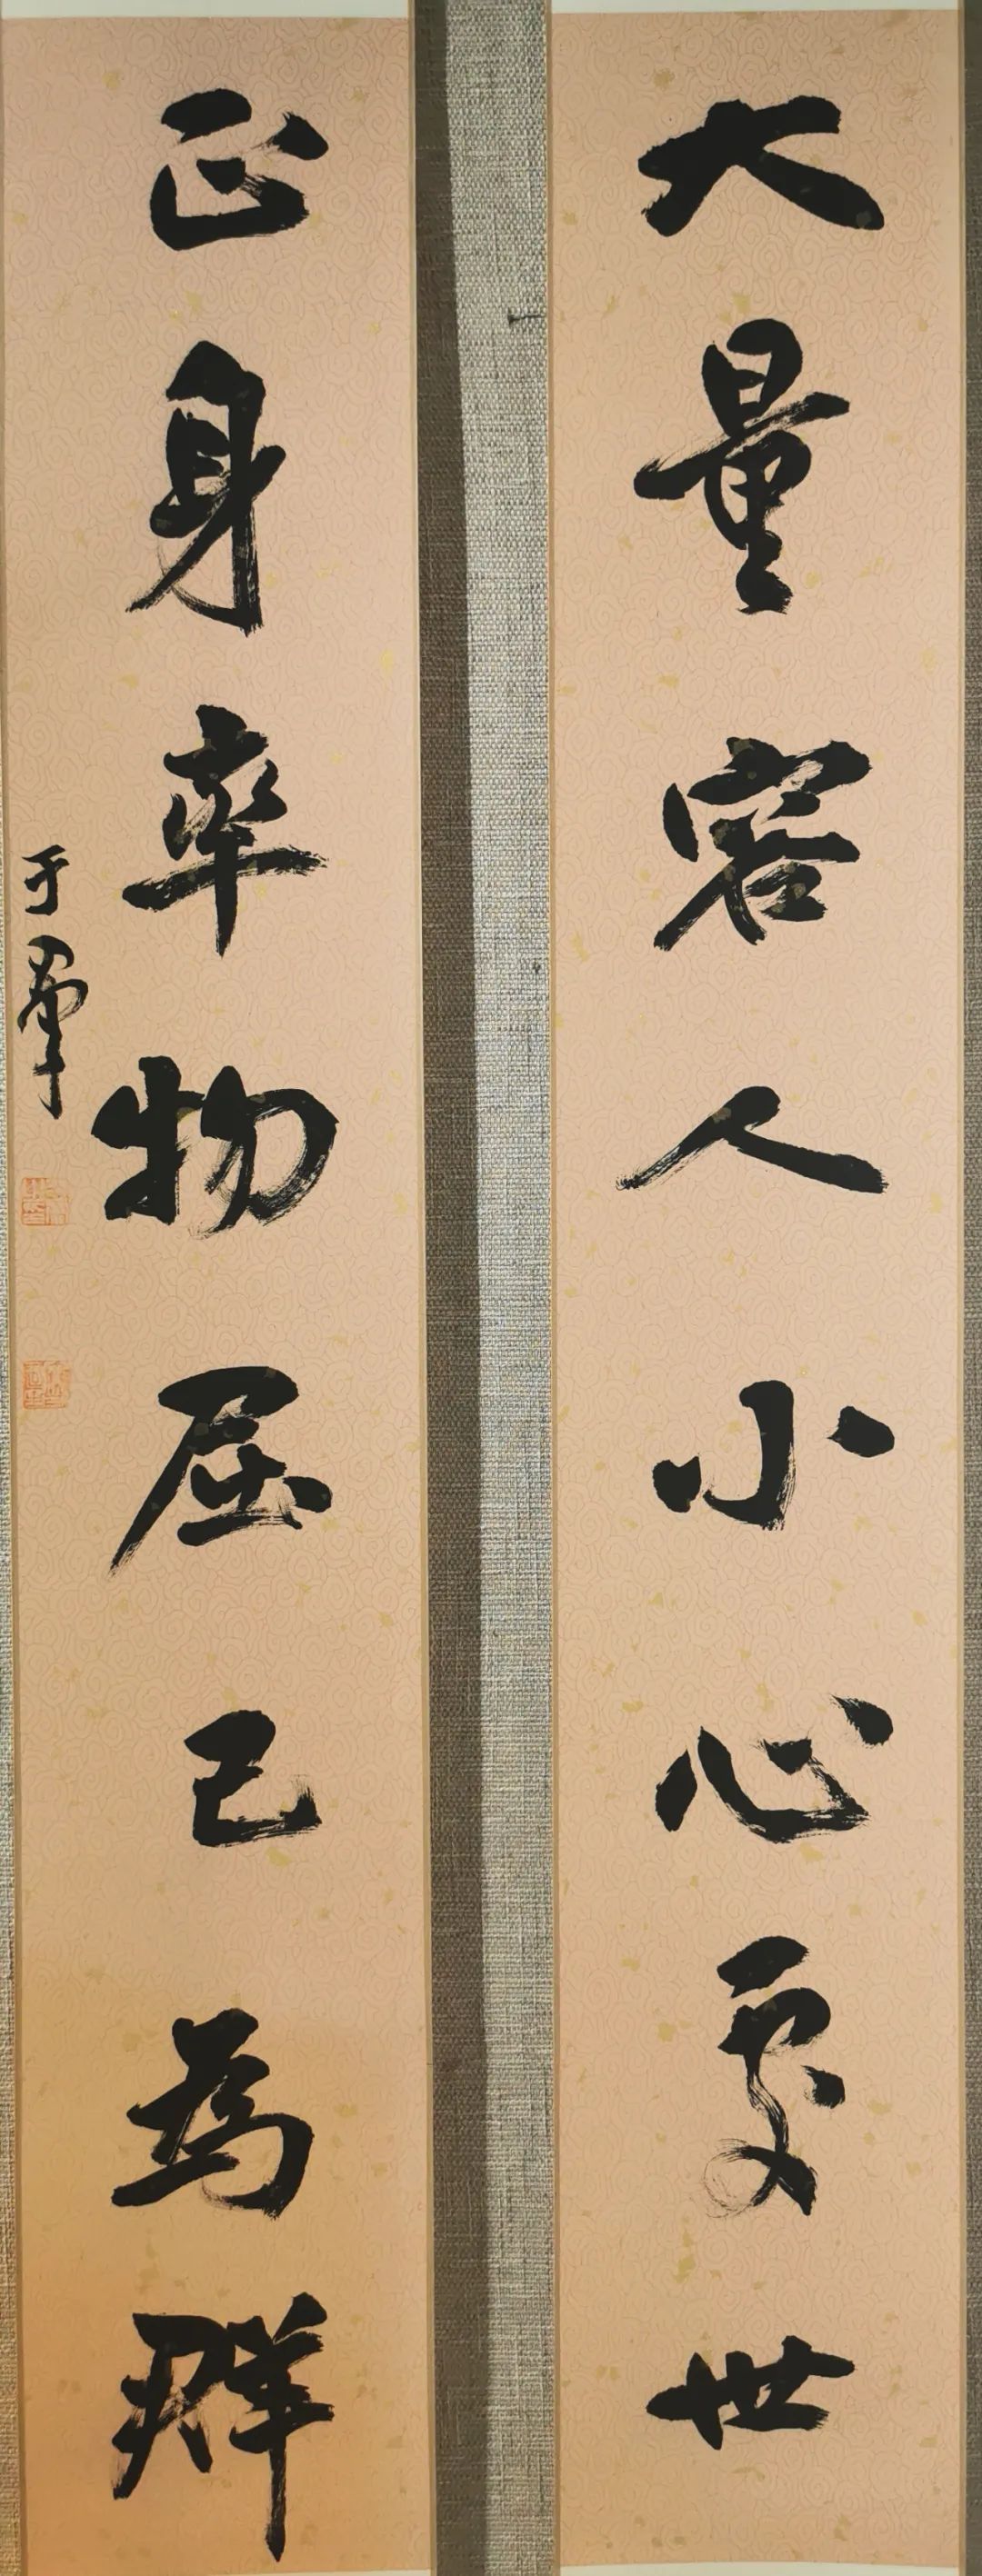 大量容人小心處世
正身率物屈己為群